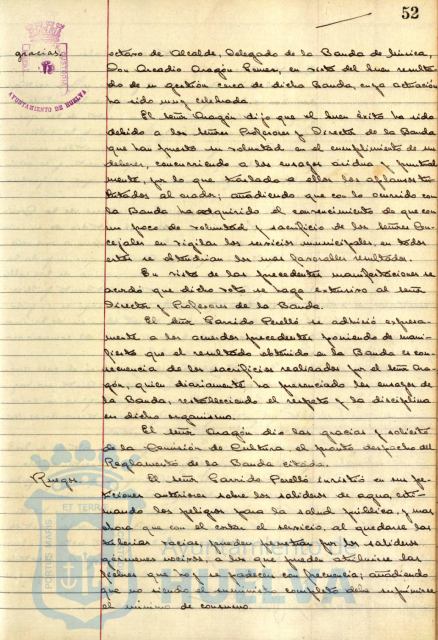 52
gracias.
octavo de Alcalde, Delegado de la Banda de música,
Don Arcadio Aragón Gomez, en vista del buen resulta-
do de su gestión cerca de dicha Banda, cuya actuación
ha sido muy celebrada.
El señor Aragón dijo que el buen éxito ha sido
debido a los señores Profesores y Director de la Banda
que han puesto su voluntad en el cumplimiento de sus
deberes, concurriendo a los ensayos asidua y puntual-
mente, por lo que traslada a ellos los aplausos tri-
butados al orador; añadiendo que con lo ocurrido con
la Banda ha adquirido el convencimiento de que con
un poco de voluntad y sacrificio de los señores Con-
cejales en vigilar los servicios municipales, en todos
estos se obtendrian los mas favorables resultados.
En vista de las precedentes manifestaciones se
acordó que dicho voto se haga extensivo al señor
Director y Profesores de la Banda.
El señor Garrido Perelló se adhirió expresa-
mente a los acuerdos precedentes poniendo de mani-
fiesto que el resultado obtenido en la Banda es con-
secuencia de los sacrificios realizados por el señor Ara-
gón, quien diariamente ha presenciado los ensayos de
la Banda, restableciendo el respeto y la disciplina
en dicho organismo.
El señor Aragón dio las gracias y solicitó
de la Comisión de Cultura, el pronto despacho del
Reglamento de la Banda citada.
Ruegos.
El señor Garrido Perelló insistió en sus pe-
ticiones anteriores sobre los salideros de agua, esti-
mando los peligros para la salud pública, y mas
ahora que con el cortar el servicio, al quedarse las
tuberias vacias, pueden penetrar por los salideros
gérmenes nocivos, a los que puede atribuirse las
fiebres que hoy se padecen con frecuencia; añadiendo
que no siendo el suministro completo debe suprimirse
el minimo de consumo.
AYUNTAMIENTO DE HUELVA
PORTUS MARIS ET TERRAE
Ayuntamiento de
HUELVA